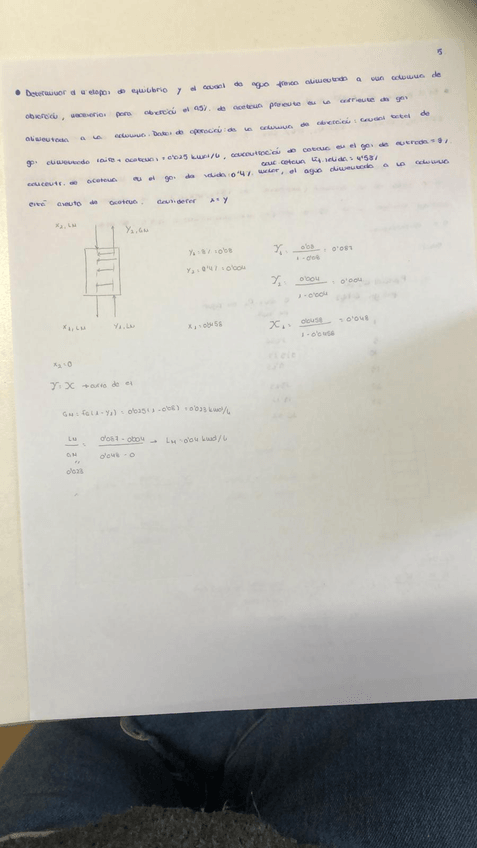 5
• Determinar el nº etapas de equilibrio y el caudal de agua fresca alimentado a una columna de
absorción, necesarios para absorber el 95% de acetona presente en la corriente de gas
alimentada a la columna. Datos de operación de la columna de absorción: caudal total de
gas alimentado (aire + acetona) = 0'025 kmol/h, concentración de acetona en el gas de entrada = 8%
conc acetona liq. salida = 4'58%
concentr. de acetona en el gas de salida 0'4% molar, el agua alimentada a la columna
está exenta de acetona. Considerar x = y
X2, LM Y2, GM
Y1 = 8% = 0'08 Y1 = 0'08 / 1-0'08 = 0'087
Y2 = 0'4% = 0'004 Y2 = 0'004 / 1-0'004 = 0'004
X1, LM Y1, GM x1 = 0'0458 X1 = 0'0458 / 1-0'0458 = 0'048
x2 = 0
Y = X → curva de eq
GM = G1(1-Y1) = 0'025(1-0'08) = 0'023 kmol/h
LM / GM = 0'087 - 0'004 / 0'048 - 0 → LM = 0'04 kmol/h
0'023